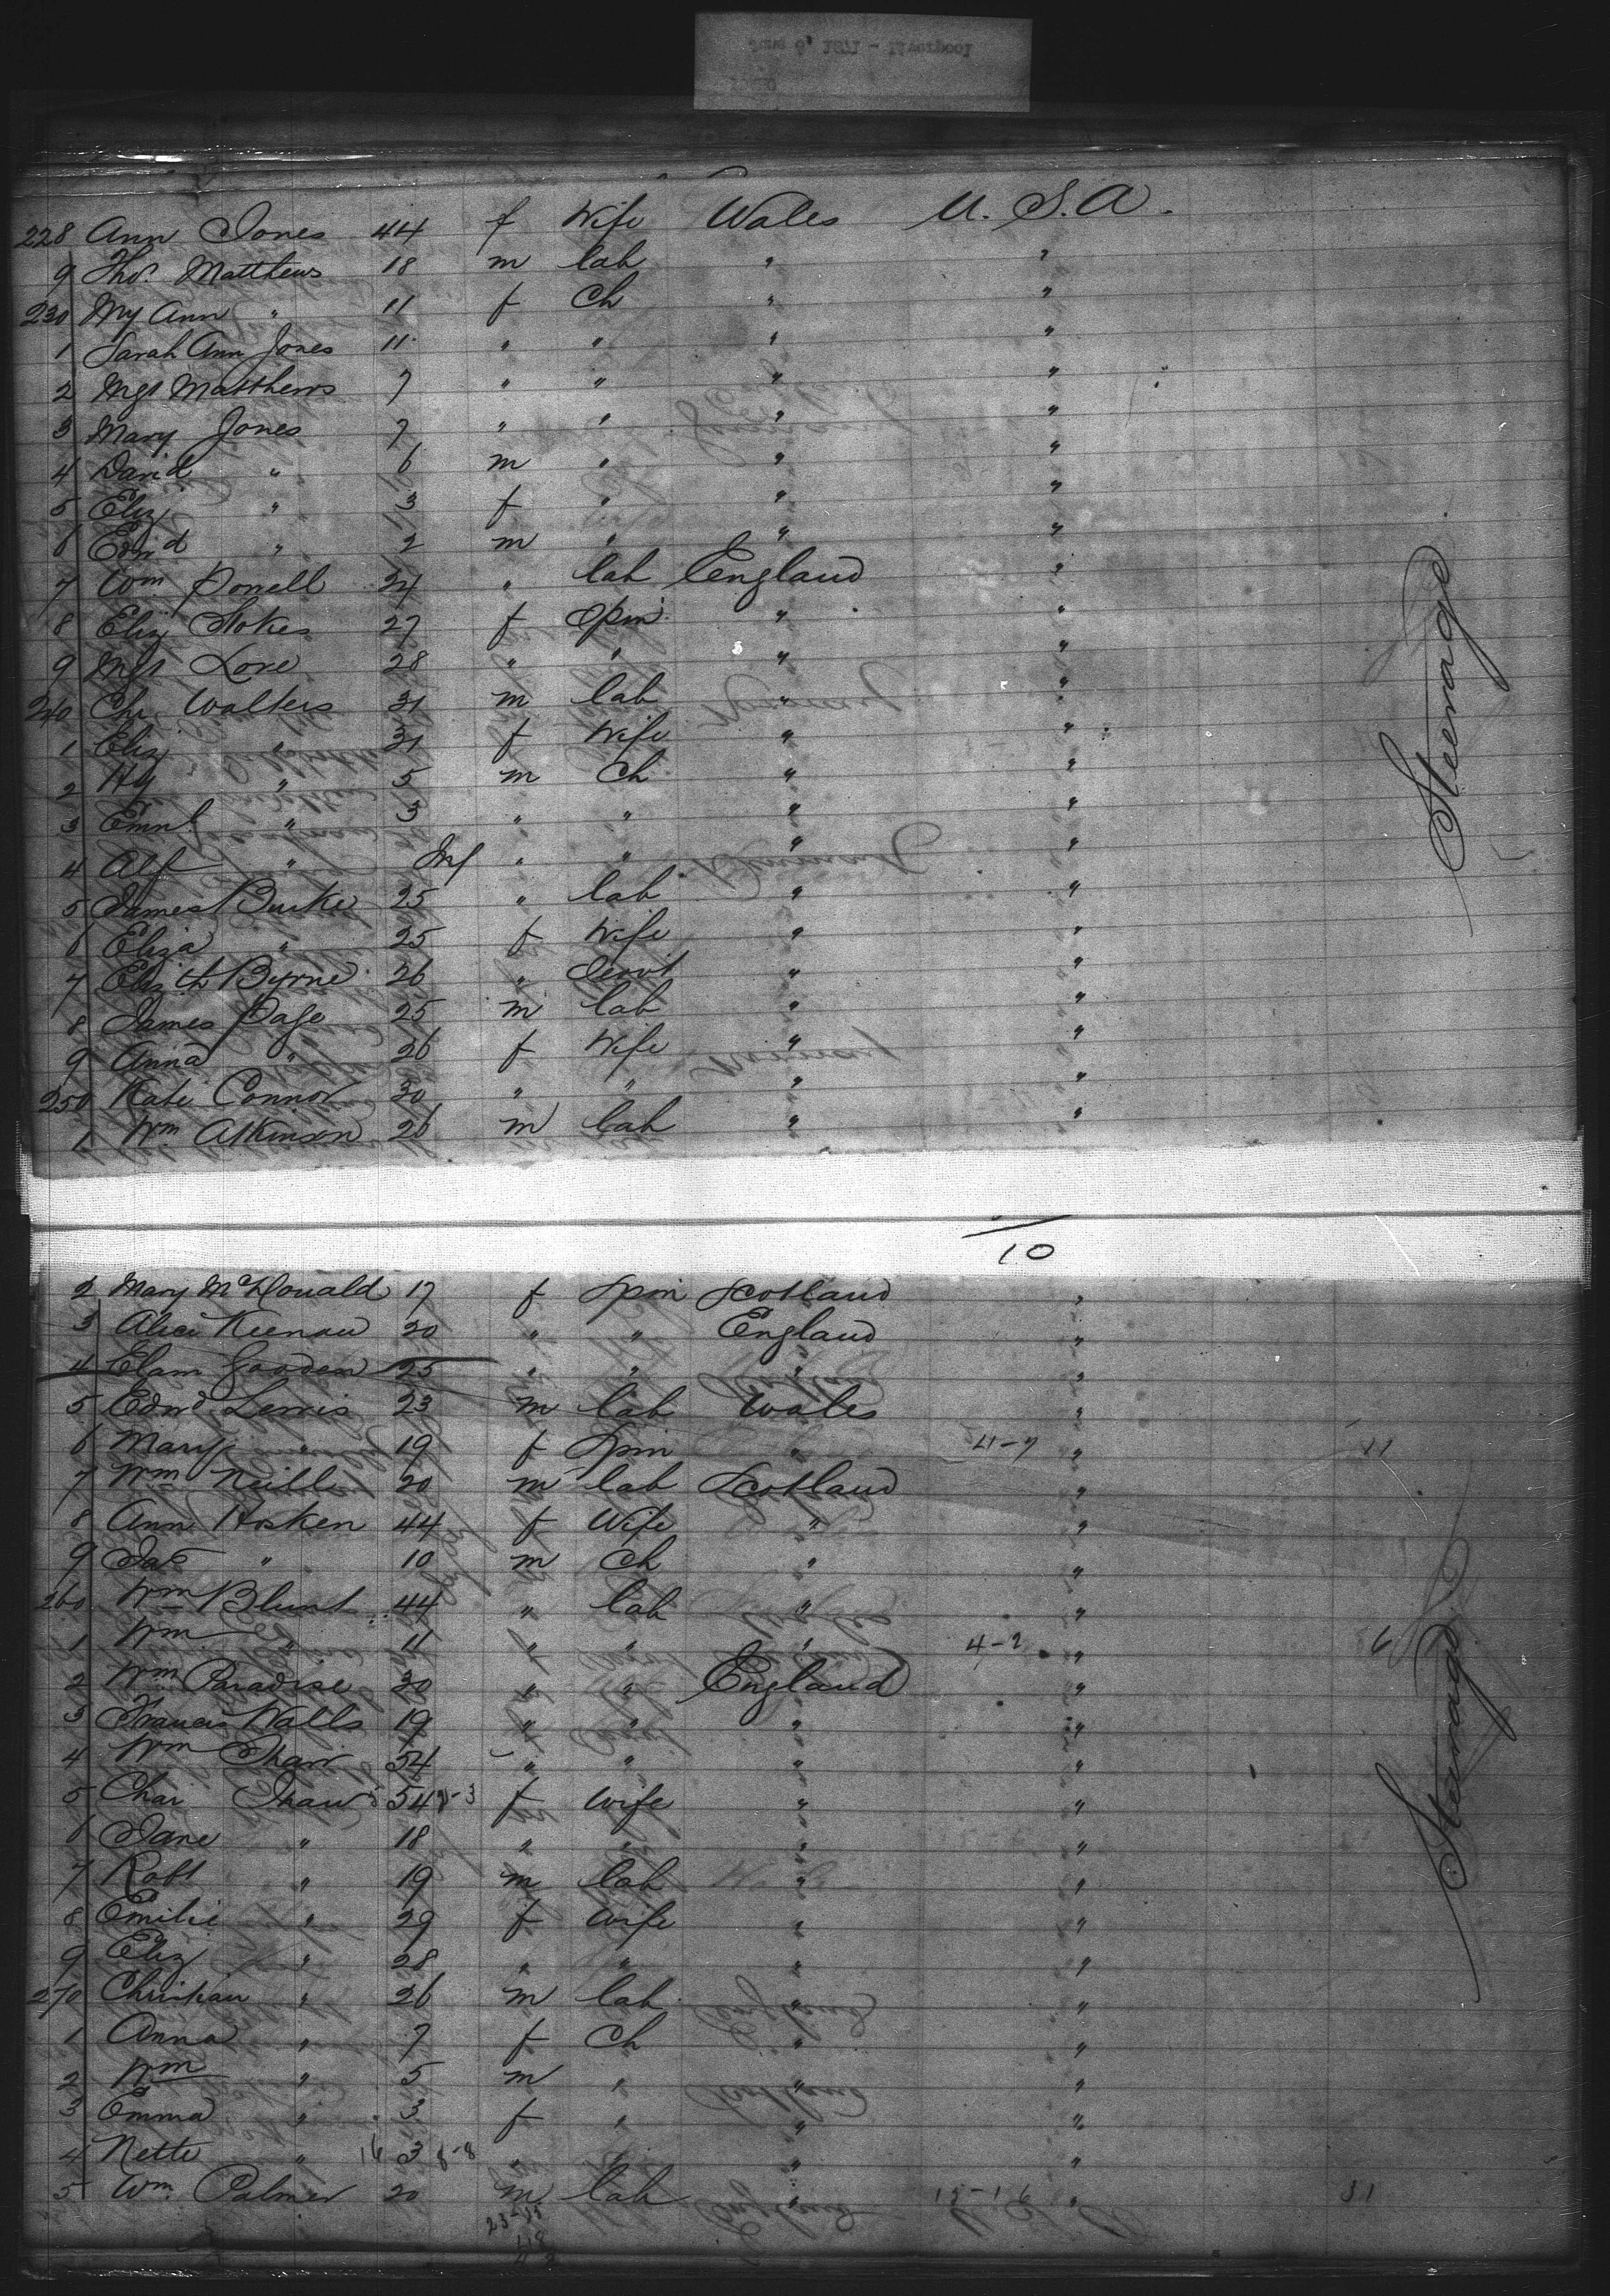 June 6, 1871 - Liverpool
228 Ann Jones 44 f Wife Wales U. S. A.
9 Thos. Matthews 18 m lab " "
230 My Ann " 11 f Ch " "
1 Sarah Ann Jones 11 " " " "
2 Mgt Matthews 7 " " " "
3 Mary Jones 7 " " " "
4 David " 6 m " " "
5 Eliz " 3 f " " "
6 Edwd " 2 m " " "
7 Wm Powell 24 " lab England "
8 Eliz Stokes 27 f Spin " "
9 Mgt Love 28 " " " "
240 Chs Walters 31 m lab " "
1 Eliz " 31 f Wife " "
2 Hy " 5 m Ch " "
3 Emnl " 3 " " " "
4 Alf " Inf " " " "
5 James Burke 25 " lab " "
6 Eliza " 25 f Wife " "
7 Elizth Byrne 26 " Servt " "
8 James Page 25 m lab " "
9 Anna " 26 f Wife " "
250 Kate Connor 30 " " " "
1 Wm Atkinson 26 m lab " "
Steerage
10
2 Mary McDonald 17 f Spin Scotland "
3 Alice Keenan 20 " " England "
4 Elam Gooden 25 " " " "
5 Edwd Lewis 23 m lab Wales "
6 Mary " 19 f Spin " 4-7 " 11
7 Wm Neill 20 m lab Scotland "
8 Ann Hosken 44 f Wife " "
9 Jas " 10 m Ch " "
260 Wm Blunt 44 " lab " "
1 Wm " 11 " " " 4-2 " 6
2 Wm Paradise 30 " " England "
3 Francis Walls 19 " " " "
4 Wm Shaw 54 " " " "
5 Char Shaw 54 8-3 f Wife " "
6 Jane " 18 " " " "
7 Robt " 19 m lab " "
8 Emilie " 29 f Wife " "
9 Eliz " 28 " " " "
270 Christian " 26 m lab " "
1 Anna " 7 f Ch " "
2 Wm " 5 m " " "
3 Emma " 3 f " " "
4 Nette " 16 3 8-8 " " " "
5 Wm Palmer 20 m lab " 15-16 " 31
23-25
48
Steerage